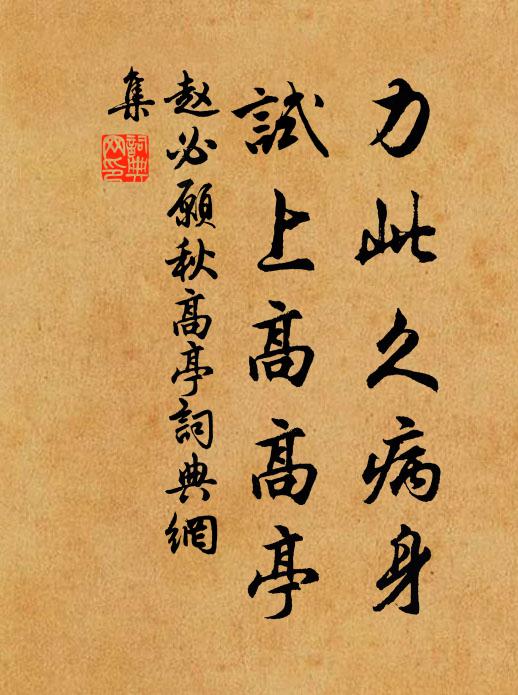 力此久病身
試上高高亭
赵必愿秋高亭詞典網
集
詞典
网印